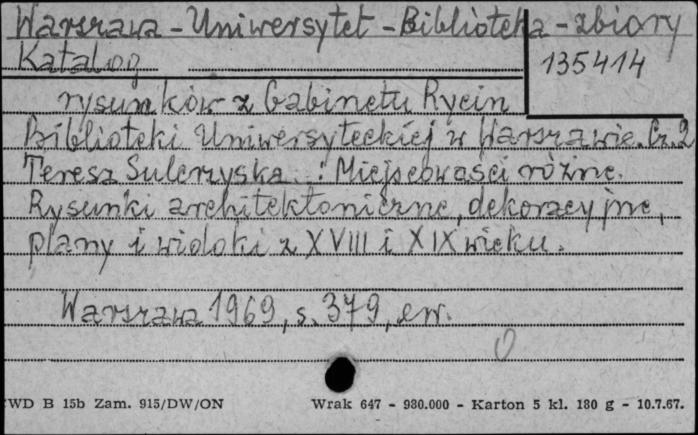 Warszawa - Uniwersytet - Biblioteka - zbiory
Katalog
135414
rysunków z Gabinetu Rycin
Biblioteki Uniwersyteckiej w Warszawie. Cz. 2
Teresa Sulerzyska : Miejscowości różne.
Rysunki architektoniczne, dekoracyjne,
plany i widoki z XVIII i XIX wieku.
Warszawa 1969, s. 379, err.
WD B 15b Zam. 915/DW/ON Wrak 647 - 980.000 - Karton 5 kl. 180 g - 10.7.67.